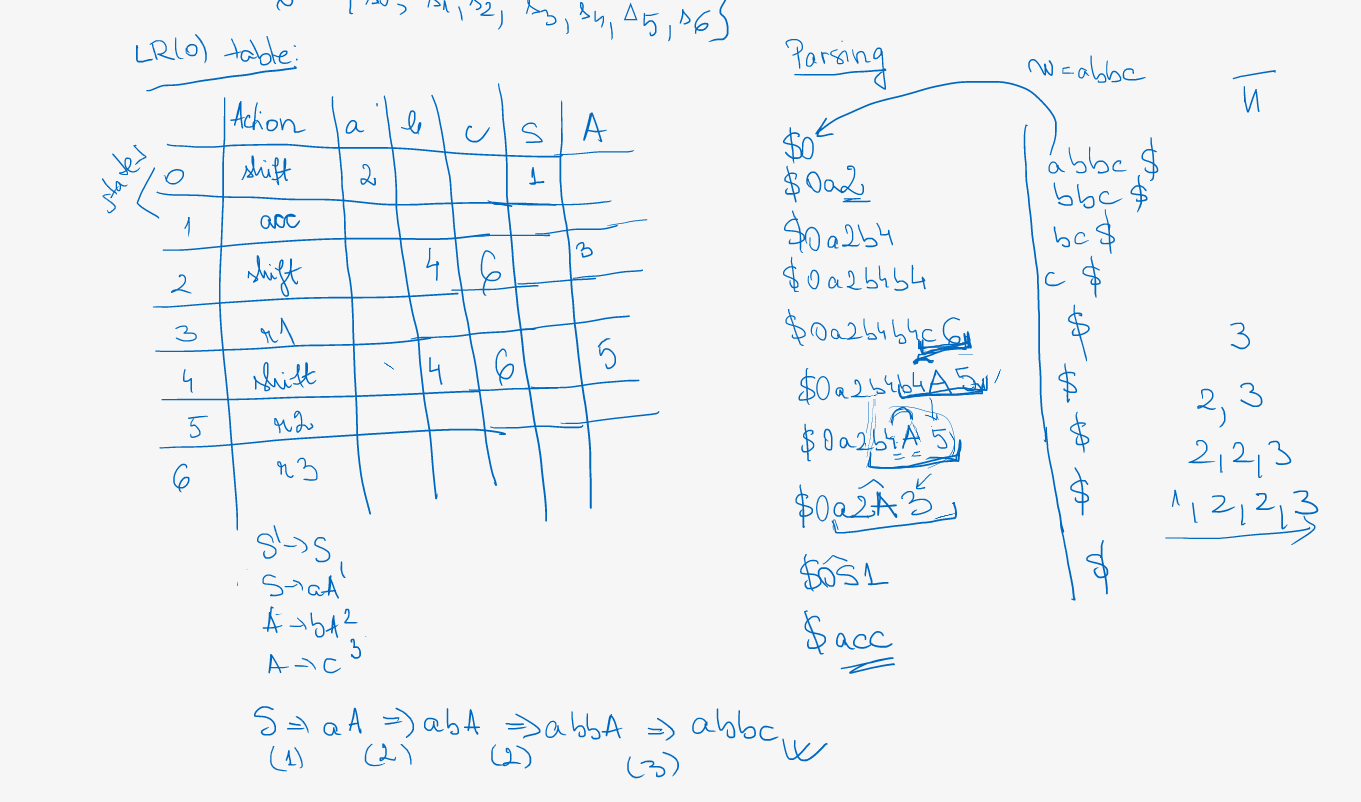 {s0, s1, s2, s3, s4, s5, s6}
LR(0) table:
Action a b c S A
states
0 shift 2 1
1 acc
2 shift 4 6 3
3 r1
4 shift 4 6 5
5 r2
6 r3
S'->S
S->aA 1
A->bA 2
A->c 3
S => aA => abA => abbA => abbc
(1) (2) (2) (3)
Parsing w=abbc
π
$0 abbc $
$0a2 bbc $
$0a2b4 bc$
$0a2b4b4 c $
$0a2b4b4c6 $ 3
$0a2b4b4A5 $ 2, 3
$0a2b4A5 $ 2,2,3
$0a2A3 $ 1,2,2,3
$0S1 $
$acc